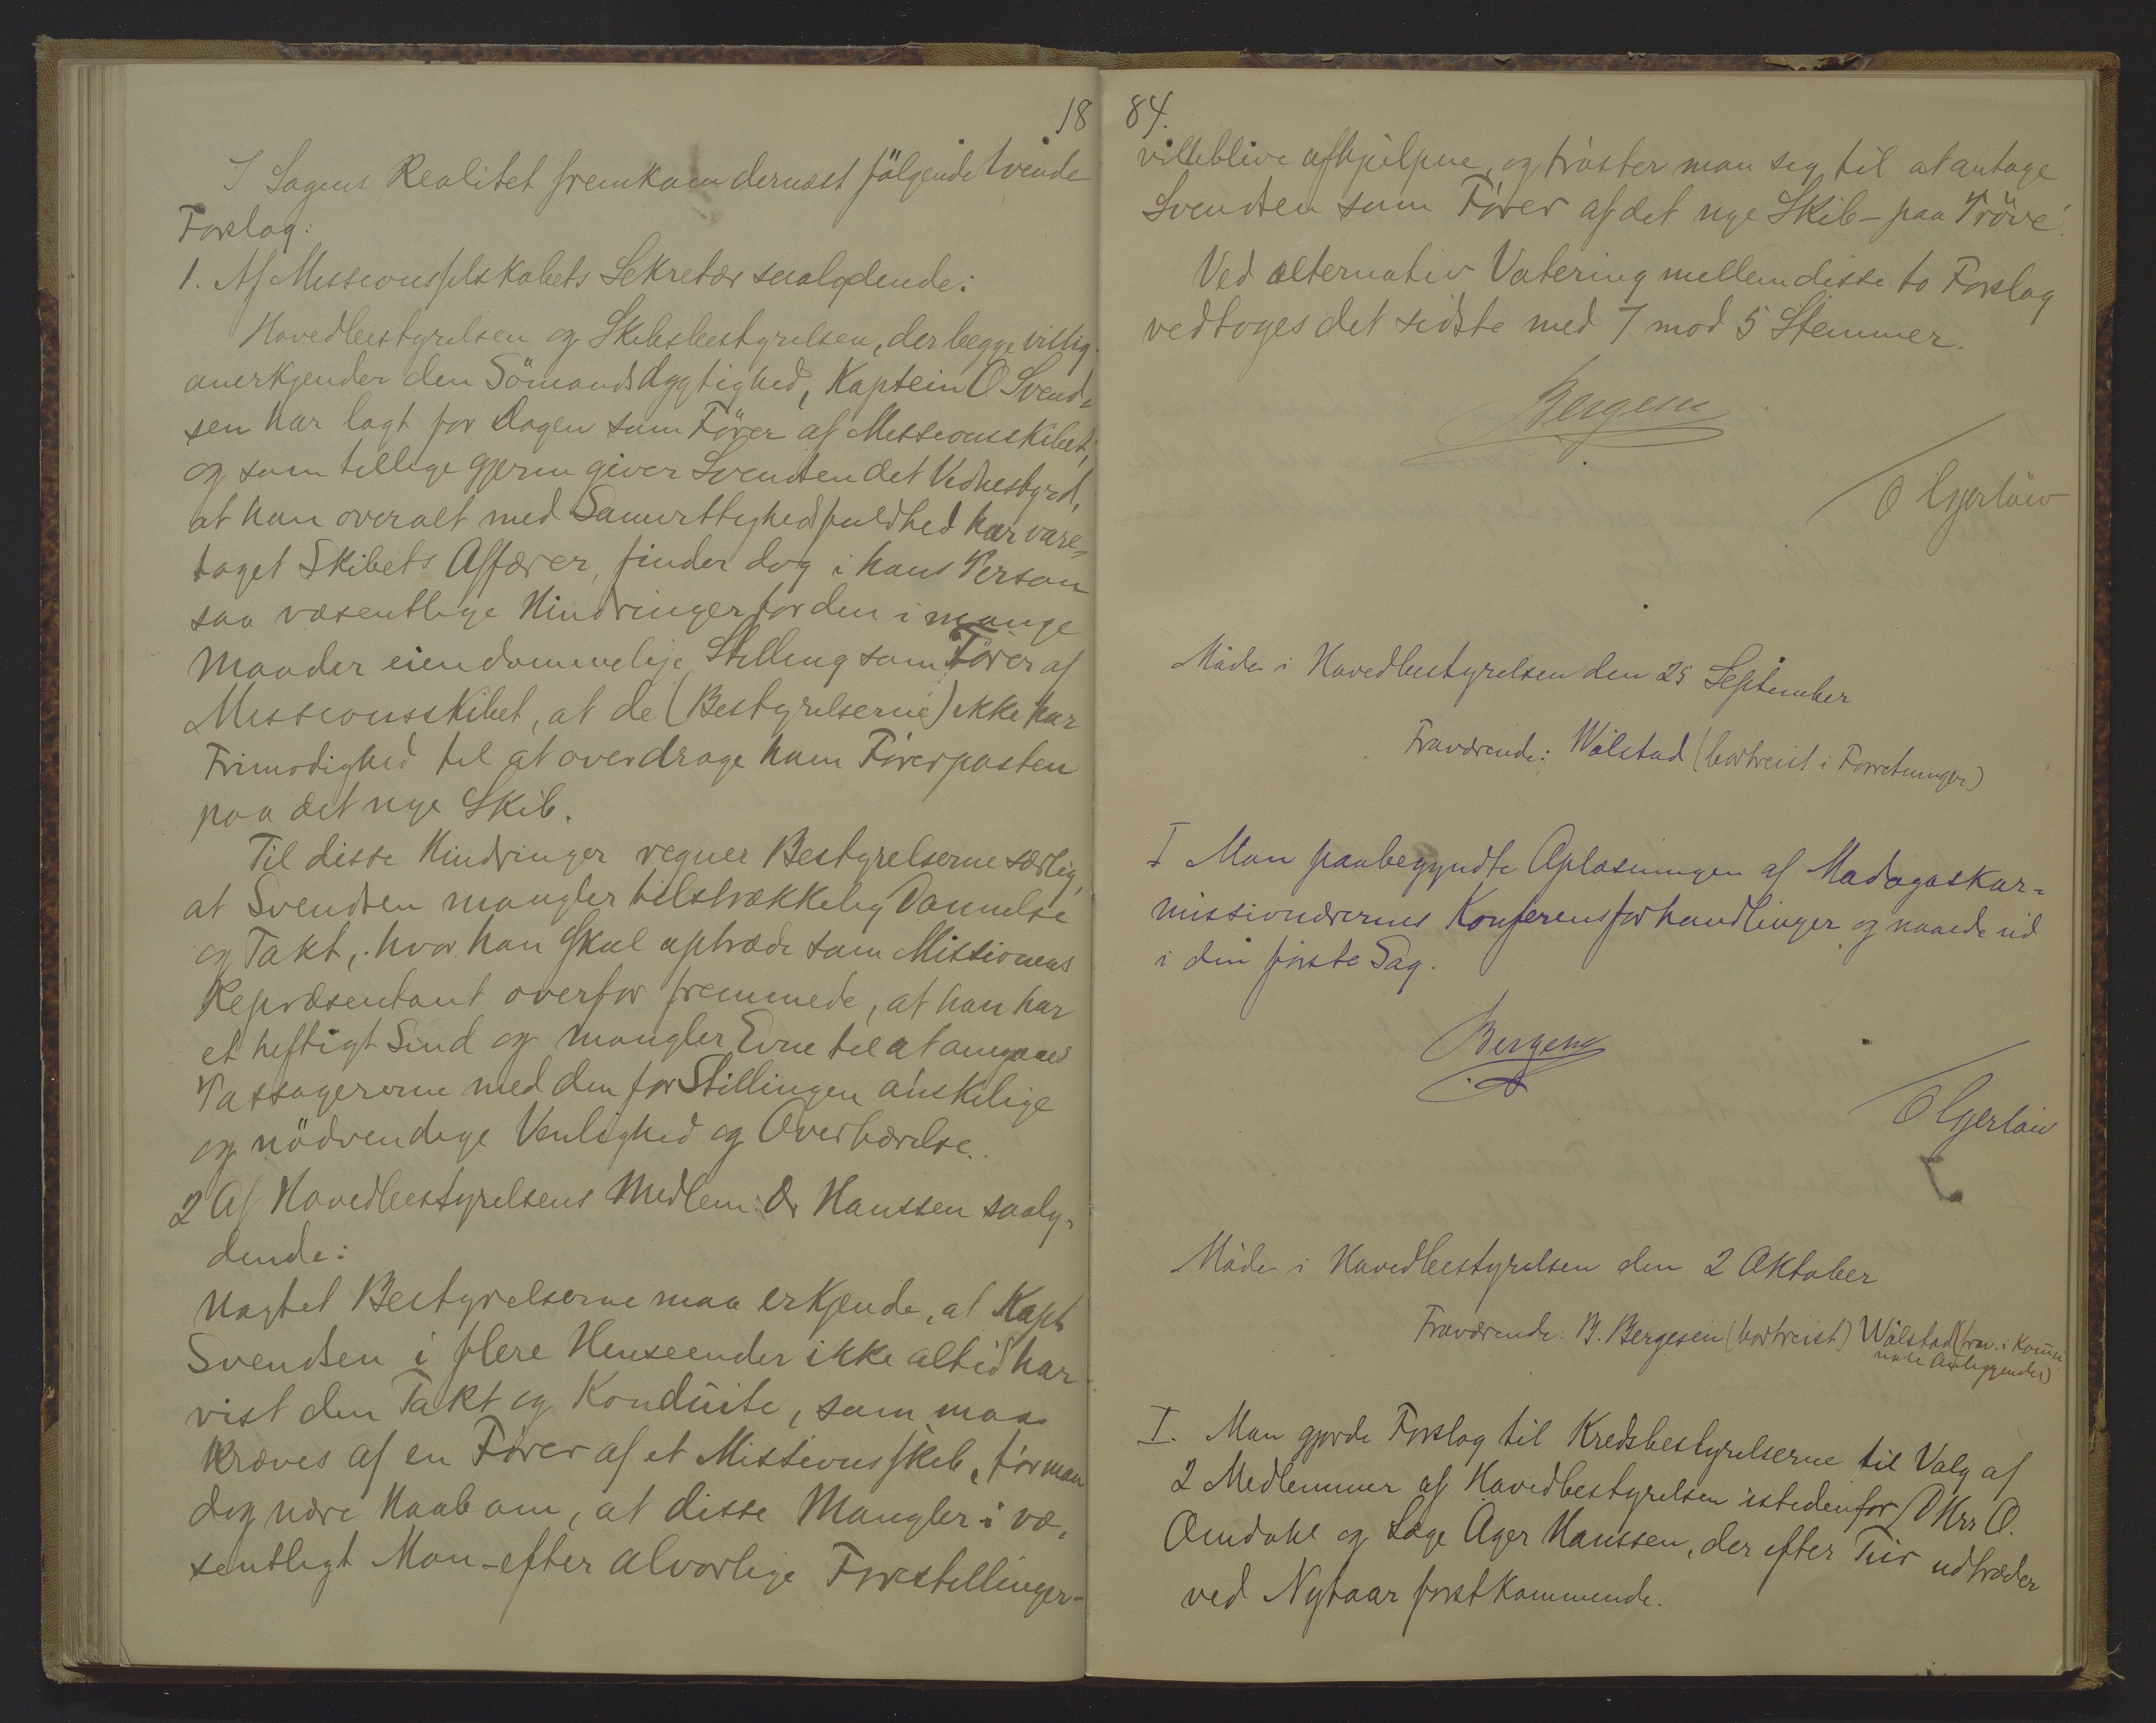 18
I Sagens Realitet fremkom dernæst følgende tvende
Forslag:
1. Af Missionsselskabets Sekretær saalydende:
Hovedbestyrelsen og Skibsbestyrelsen, der begge villig
anerkjender den Sömandsdygtighed, Kaptein O Svend-
sen har lagt for Dagen som Förer af Missionsskibet,
og som tillige gjerne giver Svendsen det Vidnesbyrd,
at han overalt med Samvittighedsfuldhed har vare-
taget Skibets Affærer, finder dog i hans Person
saa væsentlige Hindringer for den i mange
Maader eiendommelige Stilling som Förer af
Missionsskibet, at de (Bestyrelserne) ikke har
Frimodighed til at overdrage ham Förerposten
paa det nye Skib.
Til disse Hindringer regner Bestyrelserne særlig,
at Svendsen mangler tilstrækkelig Dannelse
og Takt, hvor han skal optræde som Missionens
Repræsentant overfor fremmede, at han har
et heftigt Sind og mangler Evne til at omgaaes
Passagererne med den for Stillingen önskelige
og nödvendige Venlighed og Overbærelse.
2 Af Hovedbestyrelsens Medlem Dr Hanssen saaly-
dende:
Uagtet Bestyrelserne maa erkjende, at Kapt
Svendsen i flere Henseender ikke altid har
vist den Takt og Konduite, som maa
kræves af en Förer af et Missionsskib, tör man
dog nære Haab om, at disse Mangler i væ-
sentligt Mon - efter alvorlige Forestillinger -
84.
ville blive afhjulpne, og tröster man sig til at antage
Svendsen som Förer af det nye Skib - paa Pröve.
Ved alternativ Votering mellem disse to Forslag
vedtoges det sidste med 7 mod 5 Stemmer.
Bergesen
O Gjerlöw
Möde i Hovedbestyrelsen den 25 September
Fraværende: Wölstad (bortreist i Forretninger)
I Man paabegyndte Oplæsningen af Madagaskar-
missionærernes Konferensforhandlinger og naaede ud
i den förste Sag.
Bergesen
O Gjerlöw
Möde i Hovedbestyrelsen den 2 Oktober
Fraværende: B. Bergesen (bortreist) Wölstad (frav. i Kommu
nale Anliggender)
I. Man gjorde Forslag til Kredsbestyrelserne til Valg af
2 Medlemmer af Hovedbestyrelsen istedenfor DHrr O.
Omdahl og Læge Ager Hanssen, der efter Tur udtræder
ved Nytaar förstkommende.